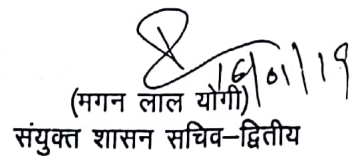 16/01/19
(मगन लाल योगी)
संयुक्त शासन सचिव-द्वितीय